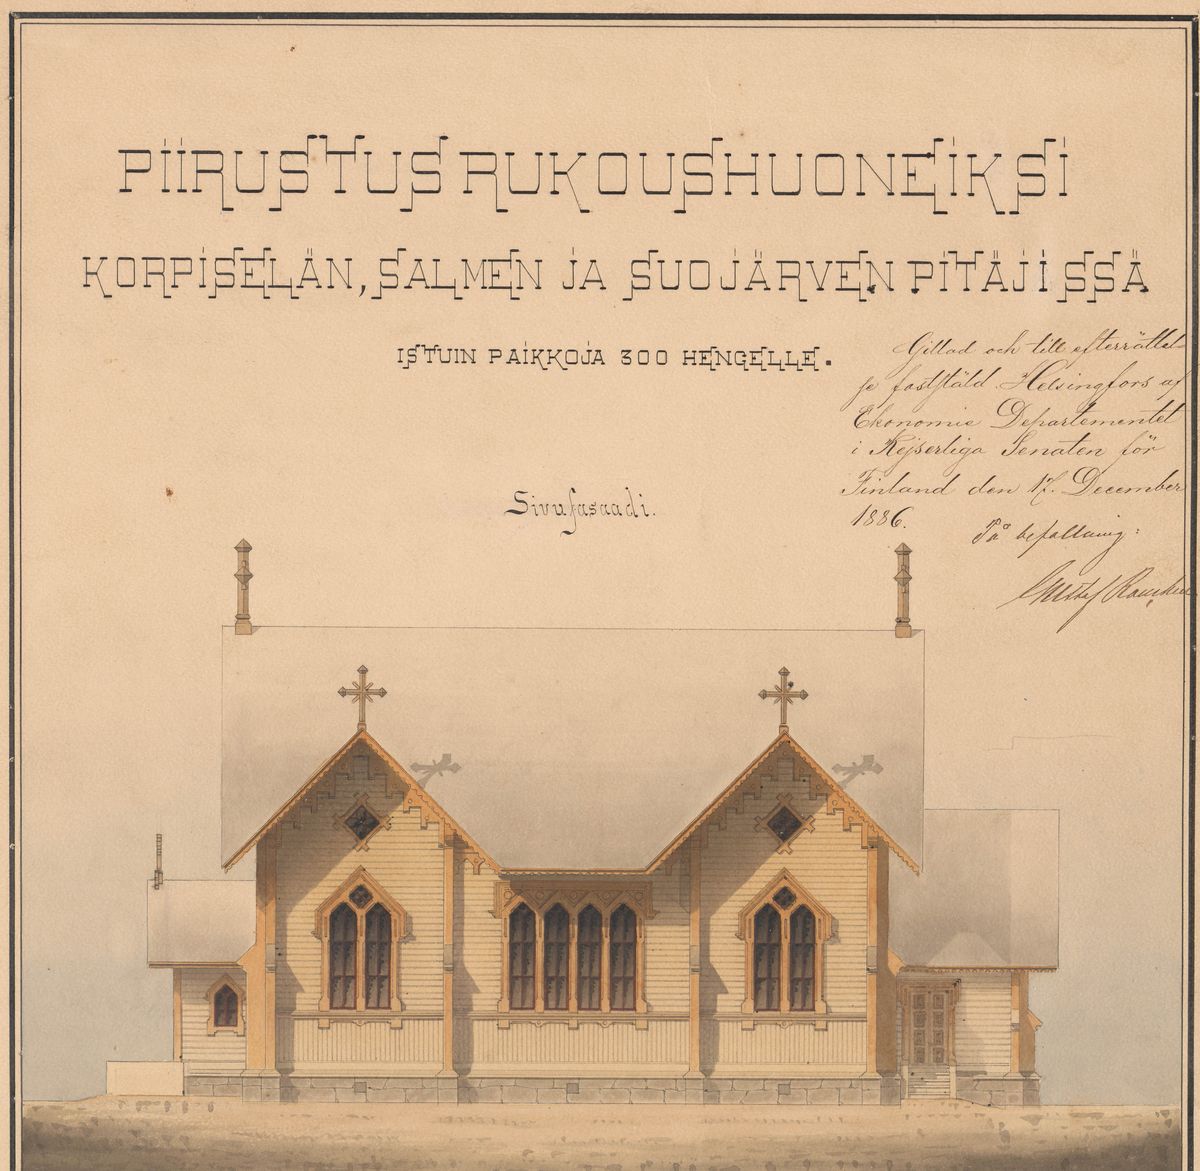 PIIRUSTUS RUKOUSHUONEIKSI
KORPISELÄN, SALMEN JA SUOJÄRVEN PITÄJISSÄ
ISTUIN PAIKKOJA 300 HENGELLE.
Gillad och till efterrättel-
se fastställd. Helsingfors af
Ekonomie Departementet
i Kejserliga Senaten för
Finland den 17. December
1886.
På befallning:
Gustaf
Sivufasaadi.